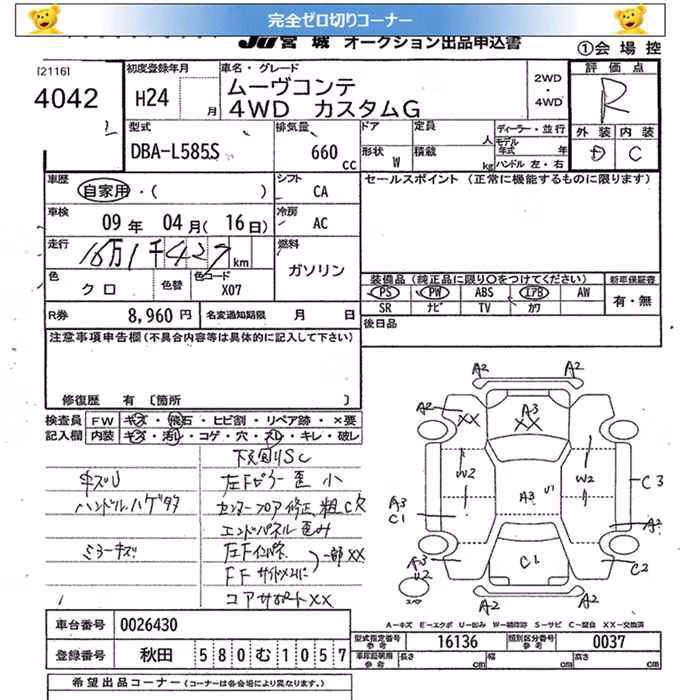 完全ゼロ切りコーナー
JU 宮城 オークション出品申込書
①会場控
[2116]
4042
初度登録年月
H24 月
車名・グレード
ムーヴコンテ
4WD カスタムG
2WD
・
4WD
評価点
R
外装 内装
D C
型式
DBA-L585S
排気量
660 CC
ドア
形状 W
定員 人
積載 kg
ディーラー・並行
モデル年式 年
ハンドル 左・右
車歴
自家用・( )
シフト
CA
セールスポイント (正常に機能するものに限ります)
車検
09 年 04 月(16 日)
冷房
AC
走行
16万1千427km
燃料
ガソリン
色
クロ
色替
色コード
X07
装備品(純正品に限り○をつけてください)
新車保証書
PS PW ABS エアB AW
SR ナビ TV カワ
有・無
R券
8,960 円
名変通知期限 月 日
後日品
注意事項申告欄(不具合内容等は具体的に記入して下さい)
修復歴 有 〔箇所 〕
検査員 FW キズ・飛石・ヒビ割・リペア跡・×要
記入欄 内装 キズ・汚れ・コゲ・穴・スレ・キレ・破レ
下廻りSC
キズU
左Fピラー歪小
ハンドルハゲタタ
センターフロア修正粗CR
エンドパネル歪み
ミラーキズ
左Fインパネ
一部XX
FFサイドメンバ
コアサポートXX
A2 A2
A2 XX A3 XX
W2 W2
A3 C1 A3 S C3
A3
A3 U2 C1 C2
A2 A2
A-キズ E-エクボ U-凹み W-補修跡 S-サビ C-腐食 XX-交換済
車台番号 0026430
登録番号 秋田 580む1057
型式指定番号 参考 16136 類別区分番号 参考 0037
車庫証明用 参考 長さ cm 幅 cm 高さ cm
希望出品コーナー (コーナーは各会場により異なります。)